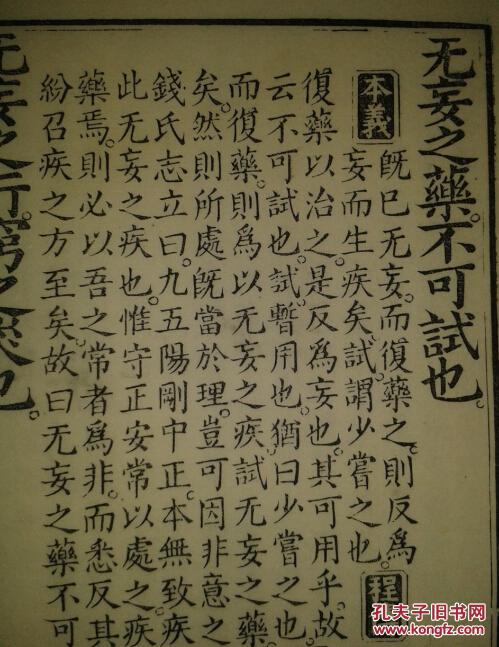 无妄之藥。不可試也。
本義
既已无妄。而復藥之。則反爲
妄而生疾矣。試謂少嘗之也。
程
復藥以治之。是反爲妄也。其可用乎。故
云不可試也。試暫用也。猶曰少嘗之也。
而復藥。則爲以无妄之疾。試无妄之藥
矣。然則所處旣當於理。豈可因非意之
錢氏志立曰。九五陽剛中正。本無致疾
此无妄之疾也。惟守正安常以處之。疾
藥焉。則必以吾之常者爲非。而悉反其
紛召疾之方至矣。故曰无妄之藥不可
无妄之行。窮之災也。
孔夫子旧书网
www.kongfz.com